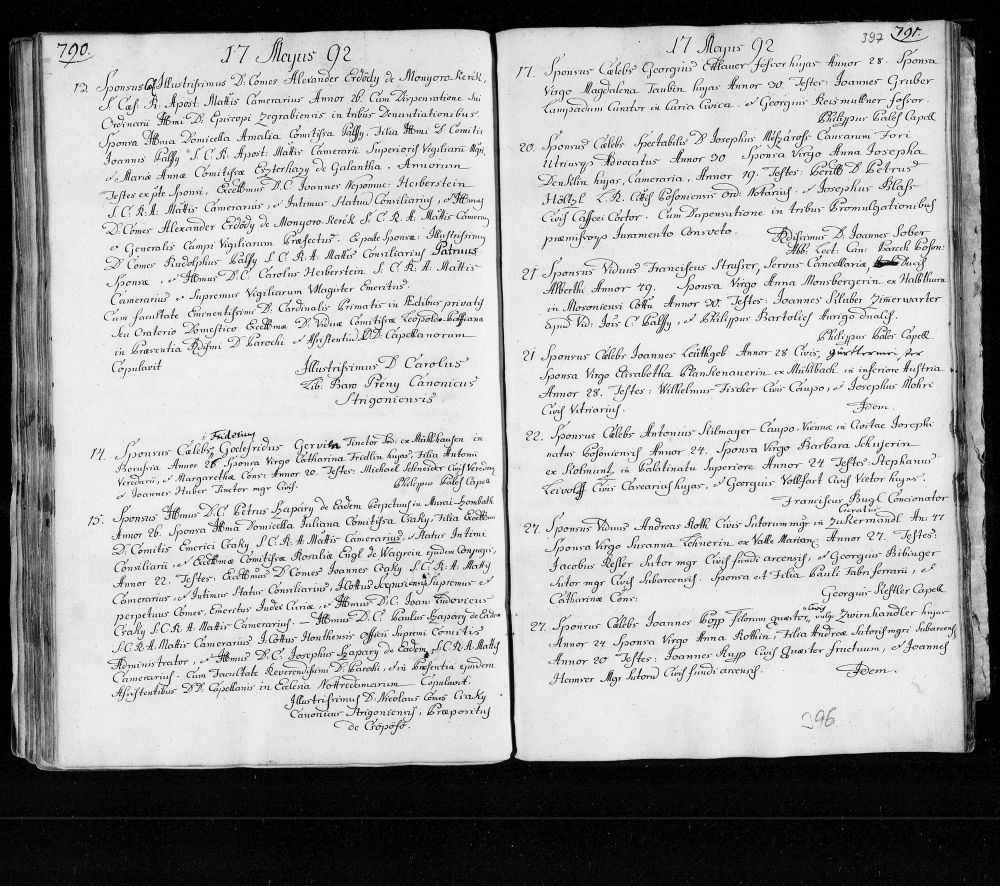 790.
17 Majus 92
13. Sponsus Illustrissimus D: Comes Alexander Erdödy de Monyoro Kerék,
S. Cæs. R. Apost. Mattis Camerarius Annor 26. Cum Dispensatione sui
Ordinarii D: Episcopi Zegrabiensis in tribus Denuntiationibus.
Sponsa Domicella Amalia Comitissa Palffy, Filia D Comitis
Joannis Palffy S. C. R. Apost: Mattis Camerarii Superioris Vigiliarii
et Mariæ Annæ Comitissæ Eszterhazy de Galantha, Annorum
Testes ex pte Sponsi, D. C. Joannes Nepomuc: Herberstein
S. C. R. A: Mattis Camerarius, et Intimus Status Consiliarius, et
D: Comes Alexander Erdödy de Monyoro Kerék S. C. R. A: Mattis Camerar,
et Generalis Campi Vigiliarum Præfectus. Ex parte Sponsæ: Illustrissimus
D: Comes Rudolphus Palffy S. C. R. A. Mattis Consiliarius Patruus
Sponsæ, et D: C. Carolus Herberstein S. C. R. A: Mattis
Camerarius et Supremus Vigiliarum Magister Emeritus.
Cum facultate Eminentissimi D: Cardinalis Primatis in Ædibus privatis
seu Oratorio Domestico D: Viduæ Comitissæ Leopoldo-Palffiana
in Præsentia D: Parochi et Assistentius DD: Capellanorum
Copulavit
Illustrissimus D Carolus
Lib: Baro Canonicus
Strigoniensis
14. Sponsus Cælebs Godefridus Tinctor ex Mühlhausen in
Borussia Annor 26 Sponsa Virgo Catharina Fridlin hujas, Filia Antonii
et Margarethæ Cons: Annor 20. Testes: Michael Schneider Civis
et Joannes Huber Tinctor mgr Civis. Philippus Páles Capell
15. Sponsus D: C. Petrus Szapáry de Eadem Perpetuus in Murai-Zombath
Annor 26. Sponsa Domicella Juliana Comitissa Csaky, Filia
D: Comitis Emerici Csaky, S. C. R. A: Mattis Camerarius, et Status Intimi
Consiliarii, et Comitissæ Rosaliæ Engl de Wagrein ejusdem Conjugis,
Annor 22. Testes: D: Comes Joannes Csaky S. C. R. A: Mattis
Camerarius, et Intimus Status Consiliarius, I: Cottus Scepusiensis Supremus et
perpetuus Comes, Emeritus Judex Curiæ, et D: C. Joan: Ludovicus
Csaky S. C. R. A: Mattis Camerarius. — D: C. Paulus Szapáry de Eadem
S. C. R. A: Mattis Camerarius I: Cottus Honthensis Officii Supremi Comitis
Administrator, et D: C. Josephus Szapáry de Eadem, S. C. R. A: Mattis
Camerarius. Cum Facultate Reverendissimi D: Parochi, et in Præsentia ejusdem
Assistentibus DD. Capellanis in Ecclesia Nostredamarum Copulavit.
Illustrissimus D: Nicolaus Comes Csaky
Canonicus Strigoniensis, Præpositus
de
397 791.
17 Majus 92
17. Sponsus Cælebs Georgius Fossor hujas Annor 28. Sponsa
Virgo Magdalena Taubin hujas Annor 30. Testes: Joannes Gruber
Lampadum Curator in Curia Civica. et Georgius Reismullner fossor.
Philippus Páles Capell
20. Sponsus Cælebs Spectabilis D Josephus Mészáross Causarum Fori
Utriusq Advocatus Annor 30 Sponsa Virgo Anna Josepha
Denklin hujas, Cameraria, Annor 19. Testes: D Petrus
Höltzl L. R. Cittis Posoniensis Ord: Notarius. et Josephus Blass
Civis Caffeei Coctor. Cum Dispensatione in tribus Promulgationibus
præmissoq Juramento Consveto.
D. Joannes Sober
Abb. Lect. Can: Paroch Poson:
21 Sponsus Viduus Franciscus Strasser, Servus Cancellariæ, Ducis
Alberthi Annor 49. Sponsa Virgo Anna Monsbergerin ex Halbthurn
in Mosoniensi Cottu Annor 30. Testes: Joannes Zimerwarter
apud Vid: Jois C. Palffy, et Philippus Bartolich Aurigo
Philippus Páles Capell
21 Sponsus Cælebs Joannes Leüthgeb Annor 28 Civis,
Sponsa Virgo Elisabetha Blankenauerin ex Mühlbach in inferiore Austria
Annor 28. Testes: Wilhelmus Fischer Civis Caupo, et Josephus Mohri
Civis Vitriarius.
Idem.
22. Sponsus Cælebs Antonius Kilmayer Caupo Viennæ in Civitae Josephi
natus Posoniensis Annor 24. Sponsa Virgo Barbara Schuserin
ex in Palatinatu Superiore Annor 24 Testes Stephanus
Leivolff Civis Carcarius hujas, et Georgius Vollfart Civis Vietor hujas.
Franciscus Bugl Concionator
27. Sponsus Viduus Andreas Roth Civis Sutorum mgr in Zukermandl An: 47
Sponsa Virgo Susanna Lehnerin ex Valle Mariana Annor 27. Testes:
Jacobus Resler Sutor mgr Civis fundi arcensis, et Georgius Bibinger
Sutor mgr Civis Subarcensis. Sponsa est Filia Pauli Fabri ferrarii, et
Catharinæ Cons:
Georgius Kestler Capell
27. Sponsus Cælebs Joannes Bopp Filorum Quæstor, Civis vulgo Zwirnhandler hujas
Annor 24 Sponsa Virgo Anna Rothin, Filia Andreæ Sutoris mgri Subarcensis
Annor 20 Testes: Joannes Rupp Civis Quæstor fructuum, et Joannes
Hamser Mgr Sutorum Civis fundi arcensis.
Idem.
396